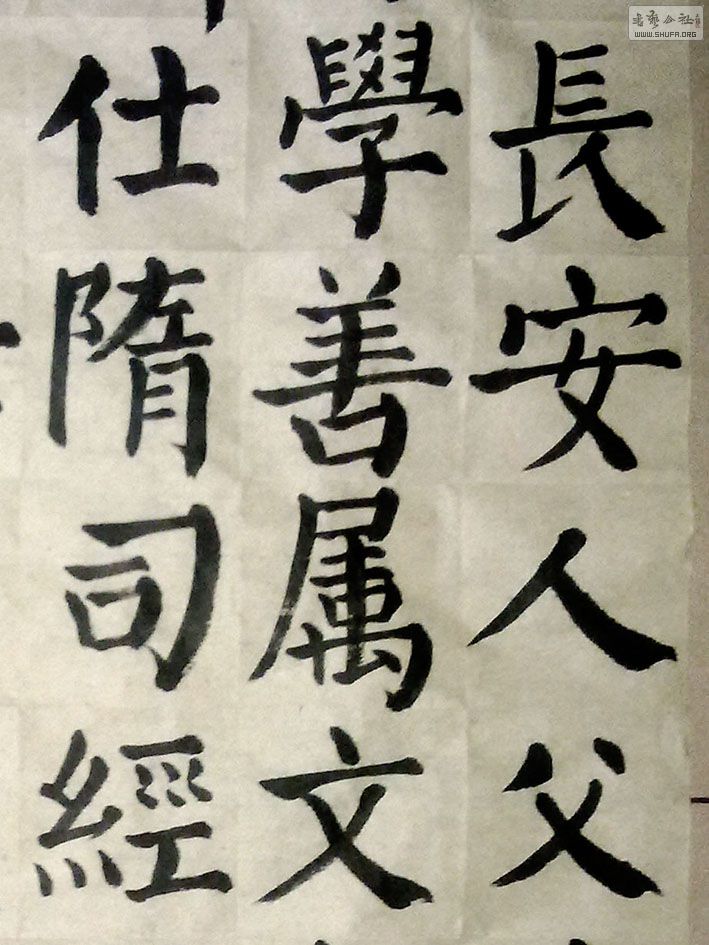 長安人父
學善属文
仕隋司經
WWW.SHUFA.ORG